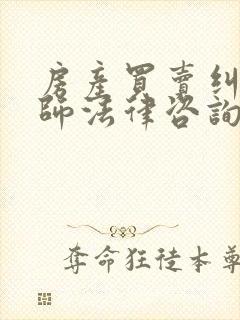 房產買賣糾
師法律咨詢
奪命狂徒本尊